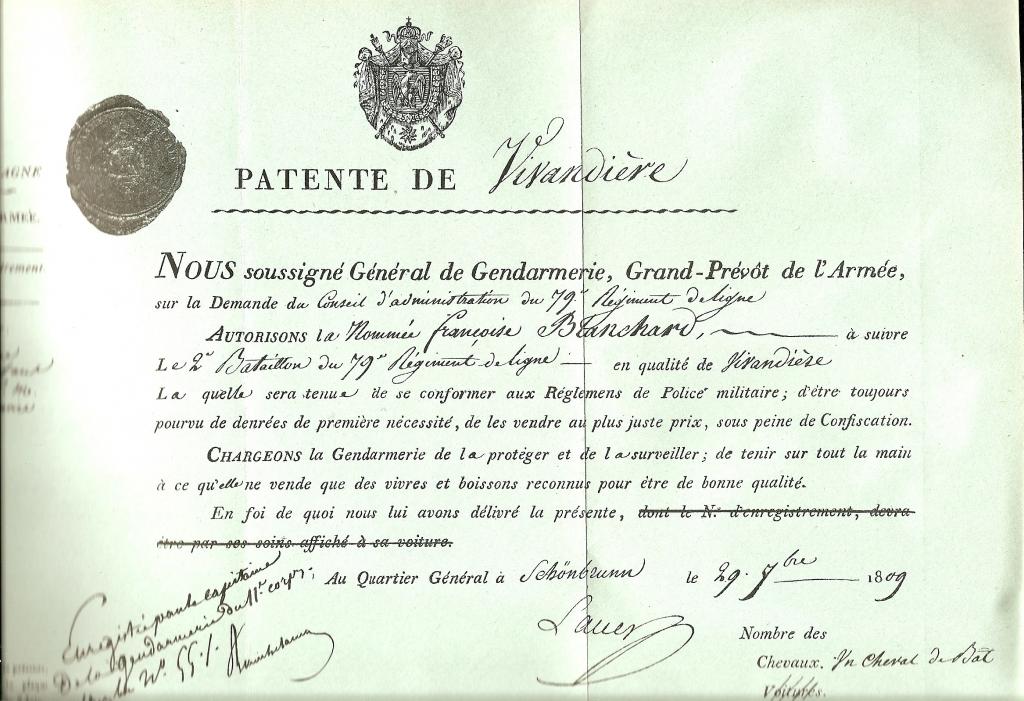 AGNE
RMÉE.
PATENTE DE Vivandière
NOUS soussigné Général de Gendarmerie, Grand-Prévôt de l'Armée,
sur la Demande du Conseil d'administration du 79e Régiment de ligne
AUTORISONS la Nommée françoise Blanchard, à suivre
Le 2e Bataillon du 79e Régiment de ligne en qualité de Vivandière
La quelle sera tenue de se conformer aux Réglemens de Police militaire; d'être toujours
pourvu de denrées de première nécessité, de les vendre au plus juste prix, sous peine de Confiscation.
CHARGEONS la Gendarmerie de la protéger et de la surveiller; de tenir sur tout la main
à ce qu'elle ne vende que des vivres et boissons reconnus pour être de bonne qualité.
En foi de quoi nous lui avons délivré la présente, dont le N.º d'enregistrement, devra
être par ses soins affiché à sa voiture.
Au Quartier Général à Schönbrunn le 29. 7bre 1809
Lauer
Enregistré par le capitaine
De la gendarmerie du 11e corps.
Nº. 55
Nombre des
Chevaux. Un Cheval de Bât
Voitures.